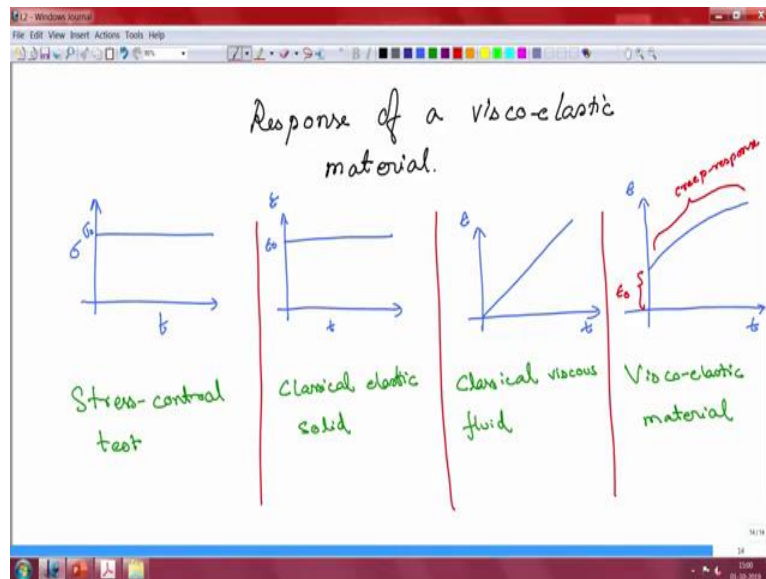 L2 - Windows Journal
File Edit View Insert Actions Tools Help
Response of a visco-elastic
material.
σ σ₀
t
Stress-control
test
ε
ε₀
t
Classical elastic
solid
ε
t
Classical viscous
fluid
creep-response
ε
ε₀
t
Visco-elastic
material
14/14
14
15:00